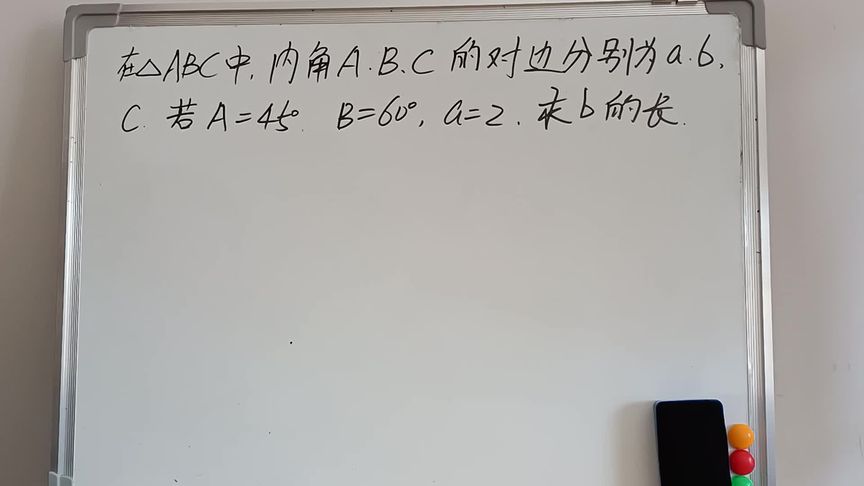 在△ABC中,内角A.B、C的对边分别为a.b,
C.若A=45°.B=60°,a=2.求b的长.